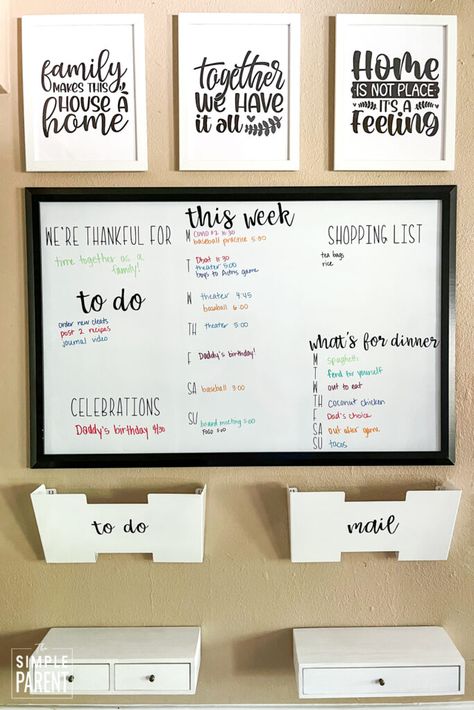 family
MAKES THIS
HOUSE A
home
together
WE HAVE
it all
Home
IS NOT PLACE
IT'S A
Feeling
WE'RE THANKFUL FOR
time together as a
family!
to do
order new cleats
post 2 recipes
journal video
CELEBRATIONS
Daddy's birthday 4/30
this week
M
Covid #2 11:30
baseball practice 5:00
T
Dhat 11:30
theater 5:00
boys to Autris game
W
theater 4:45
baseball 6:00
TH
theater 5:00
F
Daddy's birthday!
SA
baseball 3:00
SU
board meeting 5:00
SHOPPING LIST
tea bags
rice
what's for dinner
M spaghetti
T fend for yourself
W out to eat
TH coconut chicken
F Dad's choice
SA out after game
SU tacos
to do
mail
THE
SIMPLE
PARENT